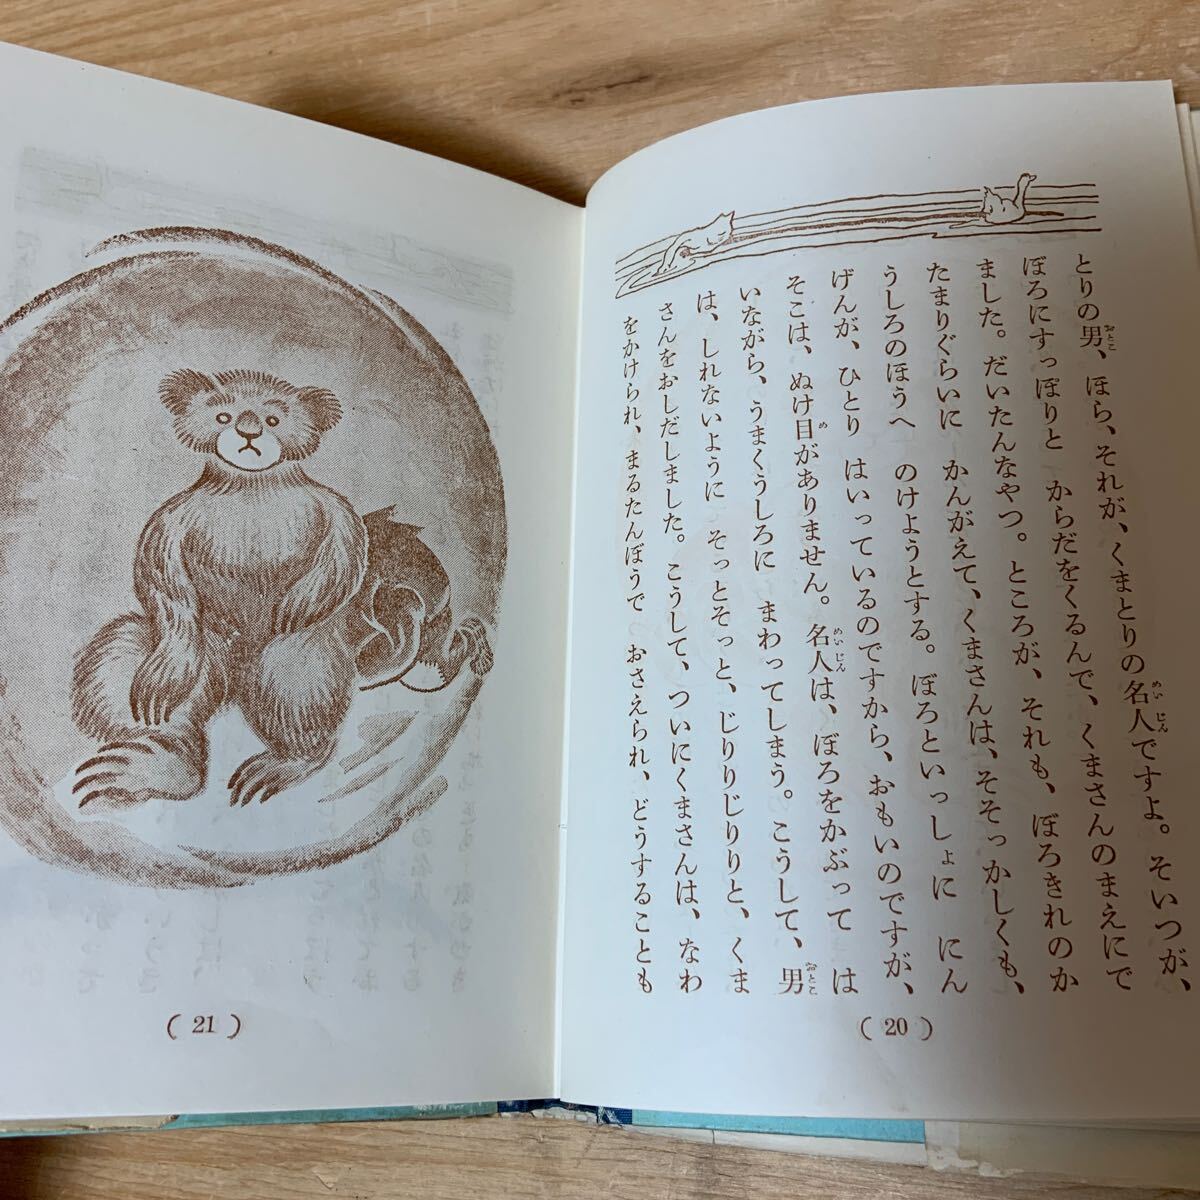 とりの男、ほら、それが、くまとりの名人ですよ。そいつが、
ぼろにすっぽりと からだをくるんで、くまさんのまえにで
ました。だいたんなやつ。ところが、それも、ぼろきれのか
たまりぐらいに かんがえて、くまさんは、そそっかしくも、
うしろのほうへ のけようとする。ぼろといっしょに にん
げんが、ひとり はいっているのですから、おもいのですが、
そこは、ぬけ目がありません。名人は、ぼろをかぶって は
いながら、うまくうしろに まわってしまう。こうして、男
は、しれないように そっとそっと、じりりじりりと、くま
さんをおしだしました。こうして、ついにくまさんは、なわ
をかけられ、まるたんぼうで おさえられ、どうすることも
( 20 )
( 21 )